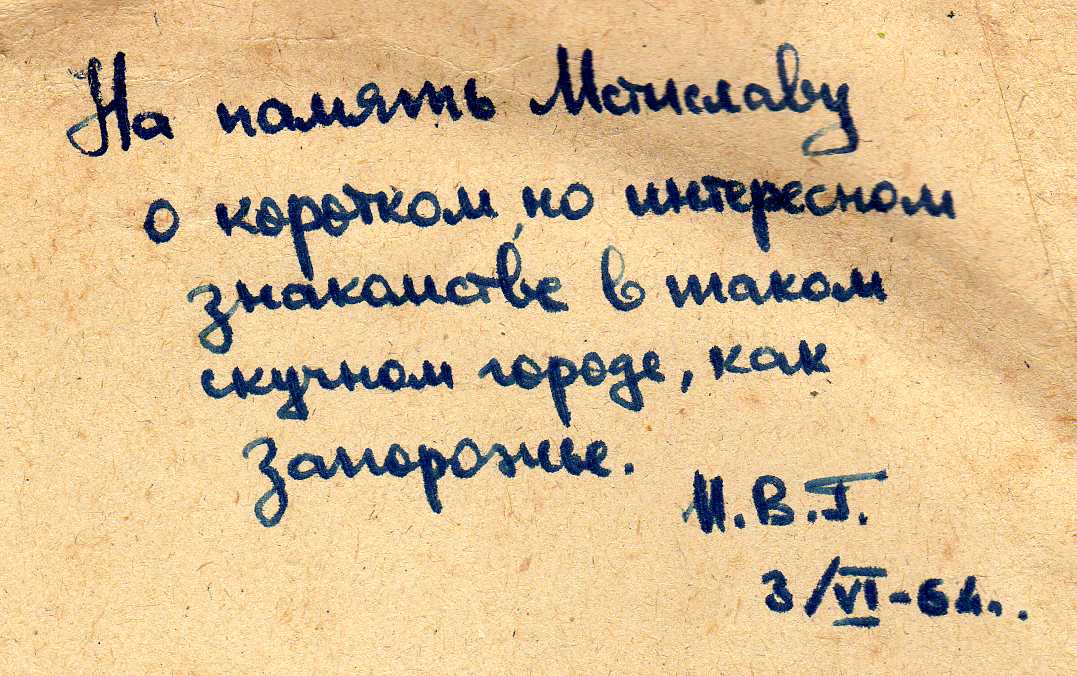 На память Мстиславу
о коротком, но интересном
знакомстве в таком
скучном городе, как
Запорожье.
М.В.Г.
3/VI-64..